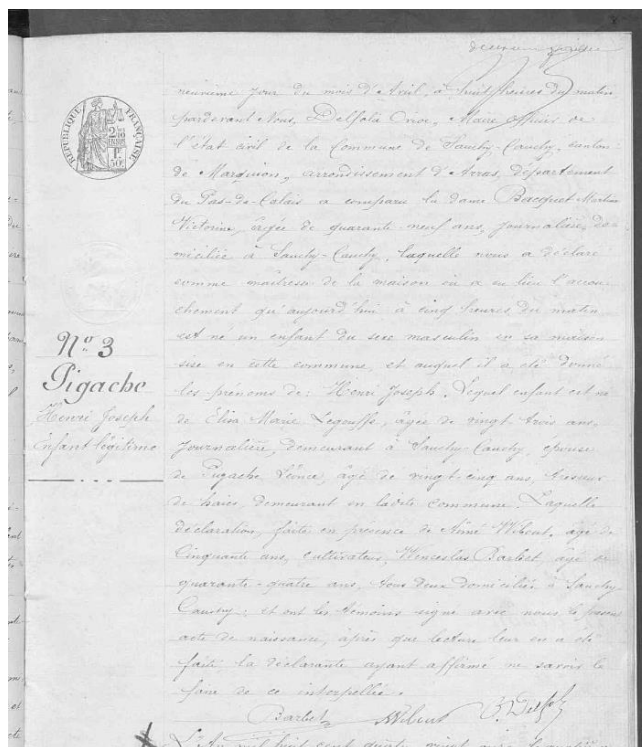 neuvième jour du mois d'Avril, à huit heures du matin
pardevant Nous, Delfolie Oner, Maire officier de
l'état civil de la Commune de Sauchy-Cauchy, canton
de Marquion, arrondissement d'Arras, Département
du Pas-de-Calais a comparu la dame Bacquet Martin
Victorine, âgée de quarante neuf ans, journalière, do-
miciliée à Sauchy-Cauchy, laquelle nous a déclaré
comme maîtresse de la maison où a eu lieu l'accou-
chement qu'aujourd'hui à cinq heures du matin
est né un enfant du sexe masculin en sa maison
sise en cette commune, et auquel il a été donné
les prénoms de: Henri Joseph. Lequel enfant est né
de Elisa Marie Legouffe, âgée de vingt trois ans,
journalière, demeurant à Sauchy-Cauchy, épouse
de Pigache Léonce, âgé de vingt cinq ans,
de haies, demeurant en ladite commune. Laquelle
déclaration, faite en présence de Aimé Wibout, âgé de
Cinquante ans, cultivateur, Wenceslas Barbet, âgé de
quarante-quatre ans, tous deux domiciliés à Sauchy-
Cauchy; et ont les témoins signé avec nous le présent
acte de naissance, après que lecture leur en a été
faite, la déclarante ayant affirmé ne savoir le
faire de ce interpellée.
Barbet Wibout
L'An mil huit cent quatre vingt
RÉPUBLIQUE FRANÇAISE
Nº 3
Pigache
Henri Joseph
Enfant légitime